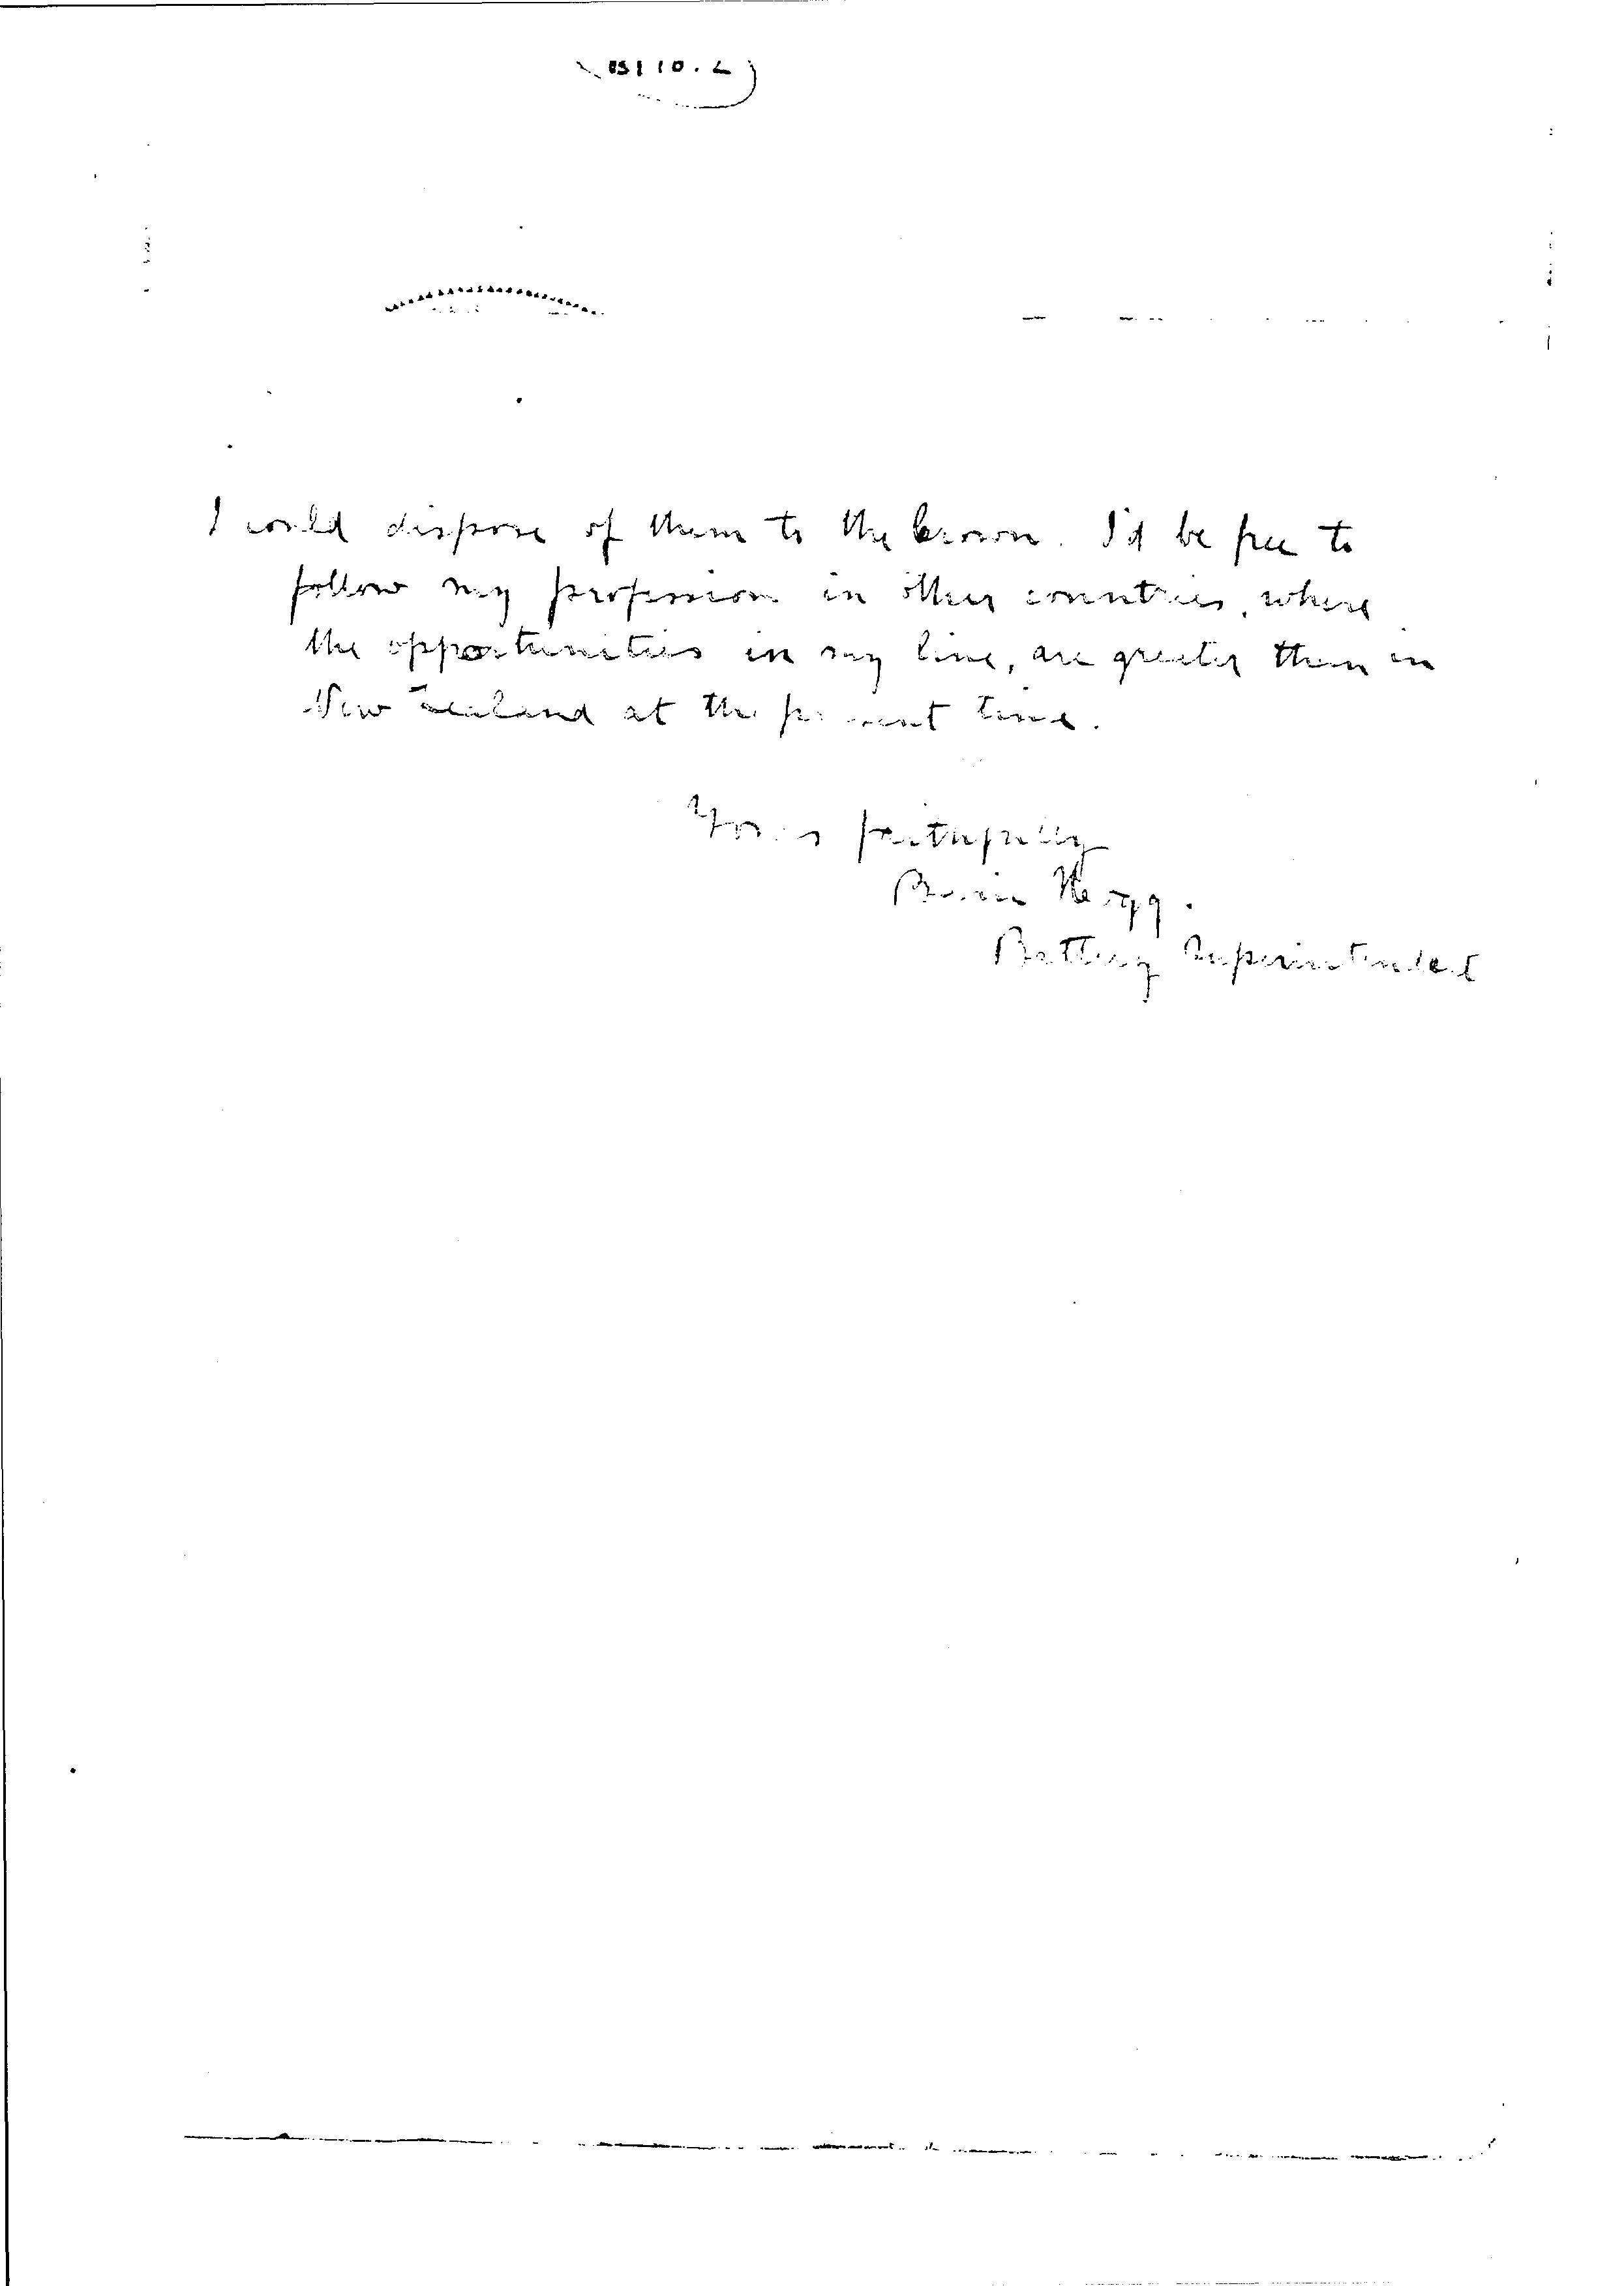 I could dispose of them to the Crown. I'd be free to
follow my profession in other countries, where
the opportunities in my line, are greater than in
New Zealand at the present time.
Yours faithfully
Battery Superintendent